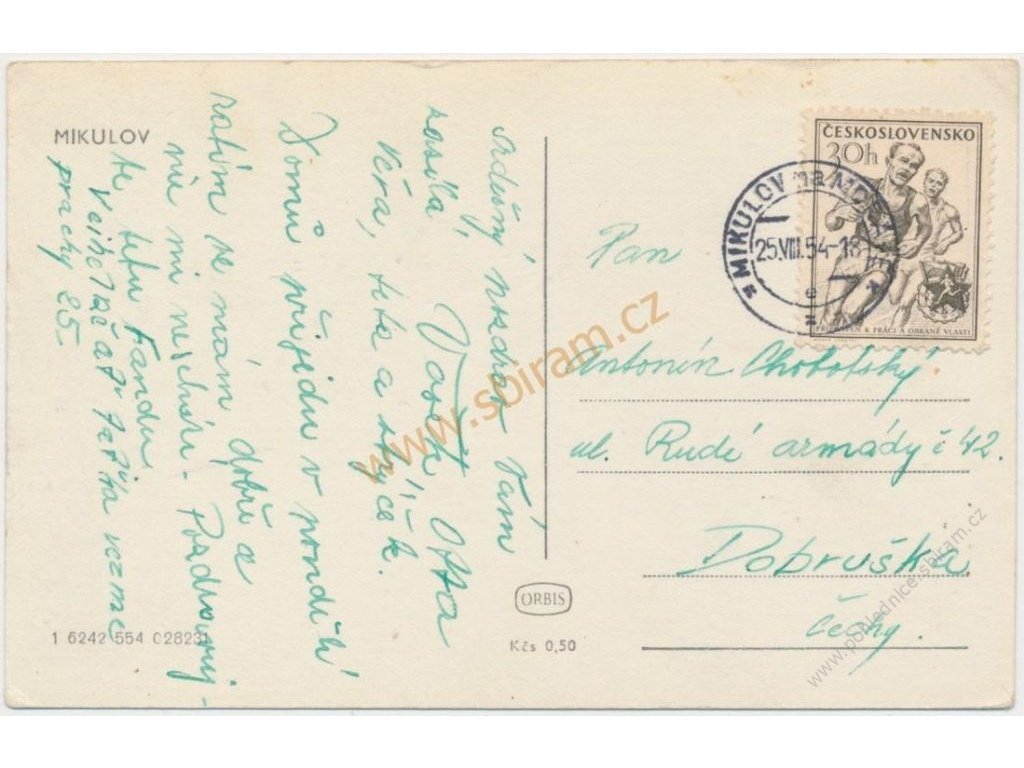 MIKULOV
Srdečný pozdrav Vám
zasílá Vašek, Otta
Věra, teta a strýček.
Domů přijedu v pondělí
zatím se mám dobře a
nic mi neschází. Pozdravuj-
te tetu Fandu
pracky 25
1 6242 554 028231
ORBIS
Kčs 0,50
ČESKOSLOVENSKO
30h
PŘIPRAVEN K PRÁCI A OBRANĚ VLASTI
MIKULOV na MOR
25.VIII.54-18
e
Pan
Antonín Chobotský
ul. Rudé armády č 42.
Dobruška
Čechy.
www.sbiram.cz
www.pohlednice.sbiram.cz